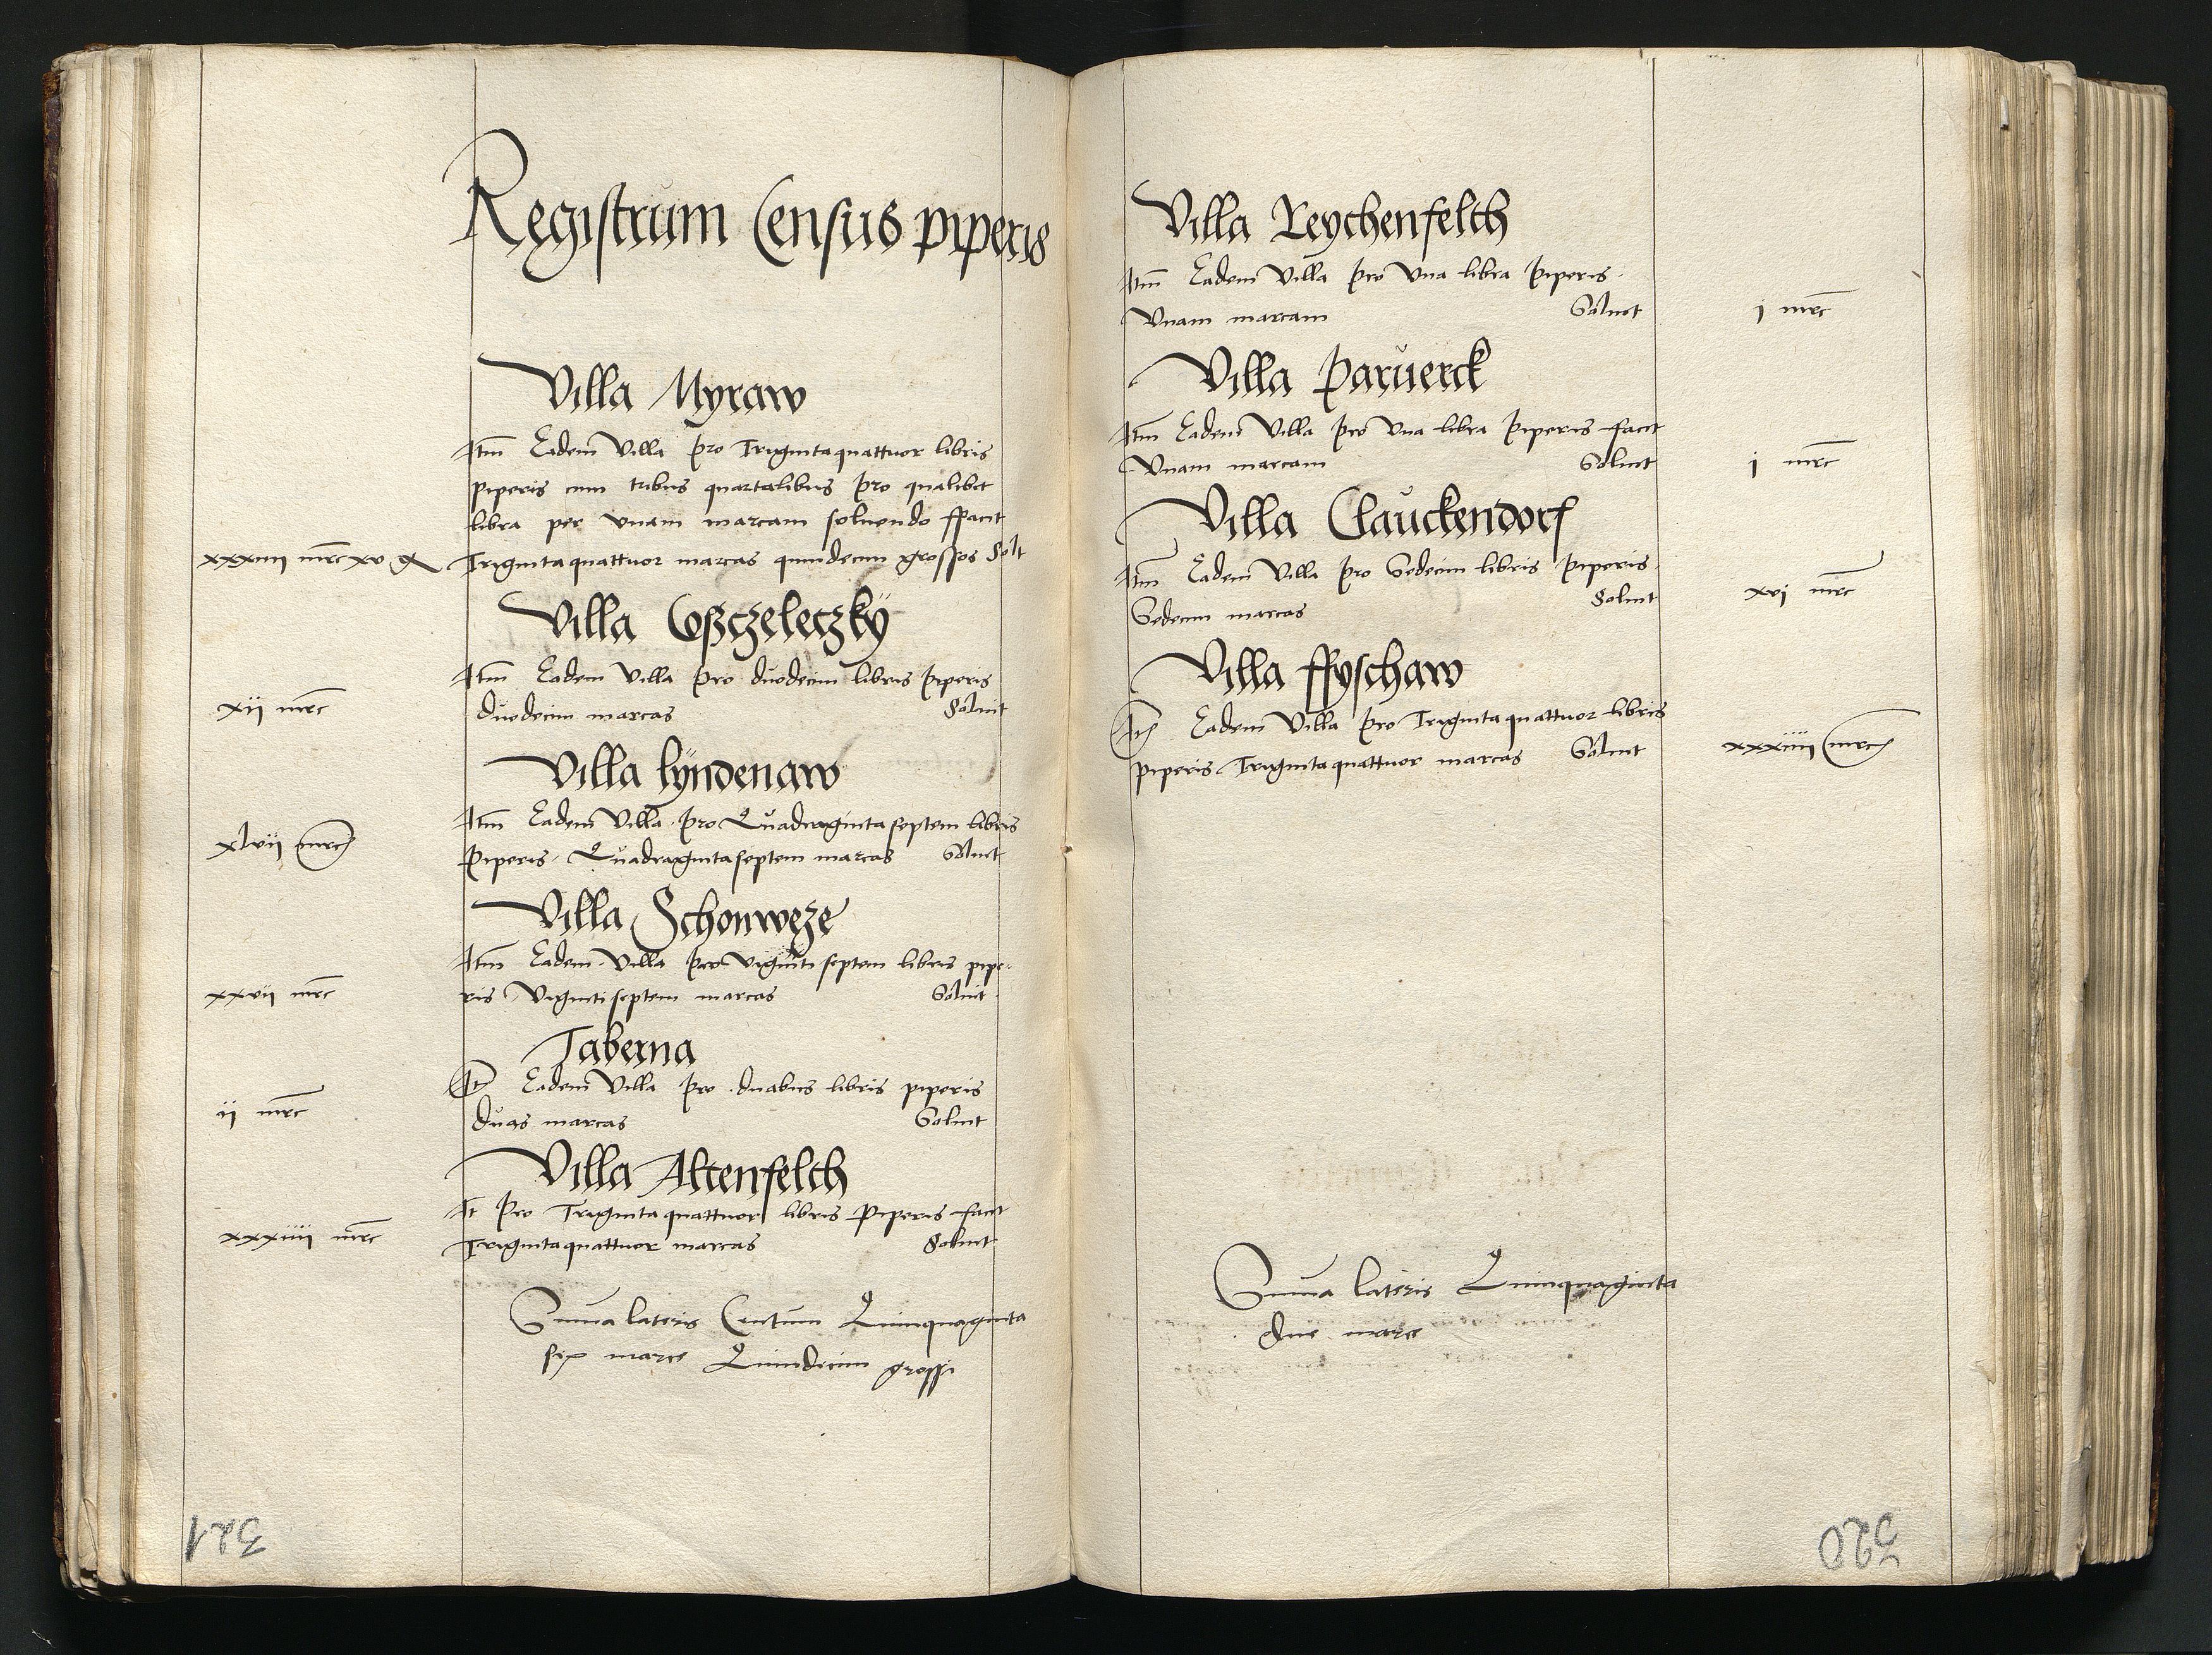 Registrum Census piperis
Villa Myraw
Itm Eadem Villa pro Trigintaquattuor libris
piperis cum tribus quartalibus pro qualibet
libra per vnam marcam soluendo ffacit
xxxiiii mrc xv g Trigintaquattuor marcas quindecim grossos Solt
Villa Coßczeleczky
Itm Eadem Villa pro duodecim libris piperis
xii mrc duodecim marcas Soluit
Villa lyndenaw
Itm Eadem Villa pro Quadragintaseptem libris
xlvii mrc piperis Quadragintaseptem marcas Soluit
Villa Schonweze
Itm Eadem Villa pro Vigintiseptem libris pipe-
xxvii mrc ris Vigintiseptem marcas Soluit
Taberna
It Eadem Villa pro duabus libris piperis
ii mrc duas marcas Soluit
Villa Altenfelth
It pro Trigintaquattuor libris piperis facit
xxxiiii mrc Trigintaquattuor marcas Soluit
Summa lateris Centum Quinquaginta
sex marce Quindecim grossi
321
Villa Reychenfelth
Itm Eadem Villa pro Vna libra piperis
Vnam marcam Soluit i mrc
Villa Paruerck
Itm Eadem Villa pro Vna libra piperis facit
Vnam marcam Soluit i mrc
Villa Clauckendorf
Itm Eadem Villa pro Sedecim libris piperis
Sedecim marcas Soluit xvi mrc
Villa ffyschaw
It Eadem Villa pro Trigintaquattuor libris
piperis Trigintaquattuor marcas Soluit xxxiiii mrc
Summa lateris Quinquaginta
due marce
320